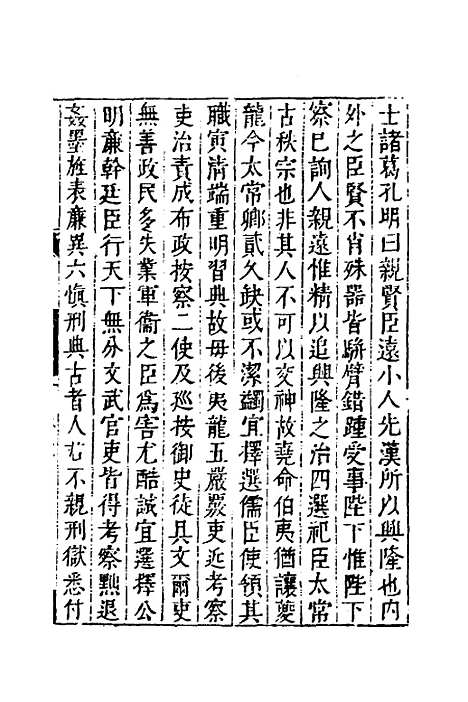 士諸葛孔明曰親賢臣遠小人先漢所以興隆也内
外之臣賢不肖殊器皆駢臂錯踵受事陛下惟陛下
察已詢人親遠惟精以追興隆之治四選祀臣太常
古秩宗也非其人不可以交神故堯命伯夷猶讓夔
龍今太常卿貳久缺或不潔蠲宜擇選儒臣使領其
職寅清端重明習典故毋後夷龍五嚴覈吏近考察
吏治責成布政按察二使及巡按御史徒具文爾吏
無善政民多失業軍衞之臣爲害尤酷誠宜選擇公
明廉幹廷臣行天下無分文武官吏皆得考察黜退
姦墨旌表廉異六慎刑典古者人君不親刑獄悉付